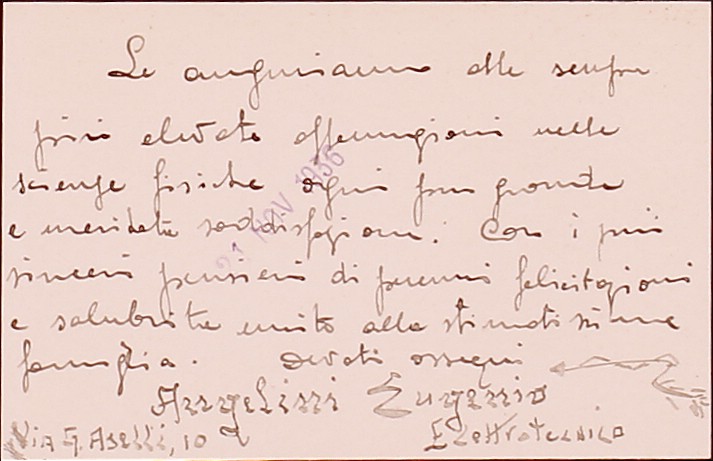 Le auguriamo alle sempre
più elevate affermazioni nelle
scienze fisiche ogni più grande
e meritata soddisfazione. Con i più
sinceri pensieri di felicitazioni
e salubrità unito alla stimatissima
famiglia. Devoti ossequi
Angelini Eugenio
Via G. Aselli, 10 Elettrotecnico
21 NOV 1936